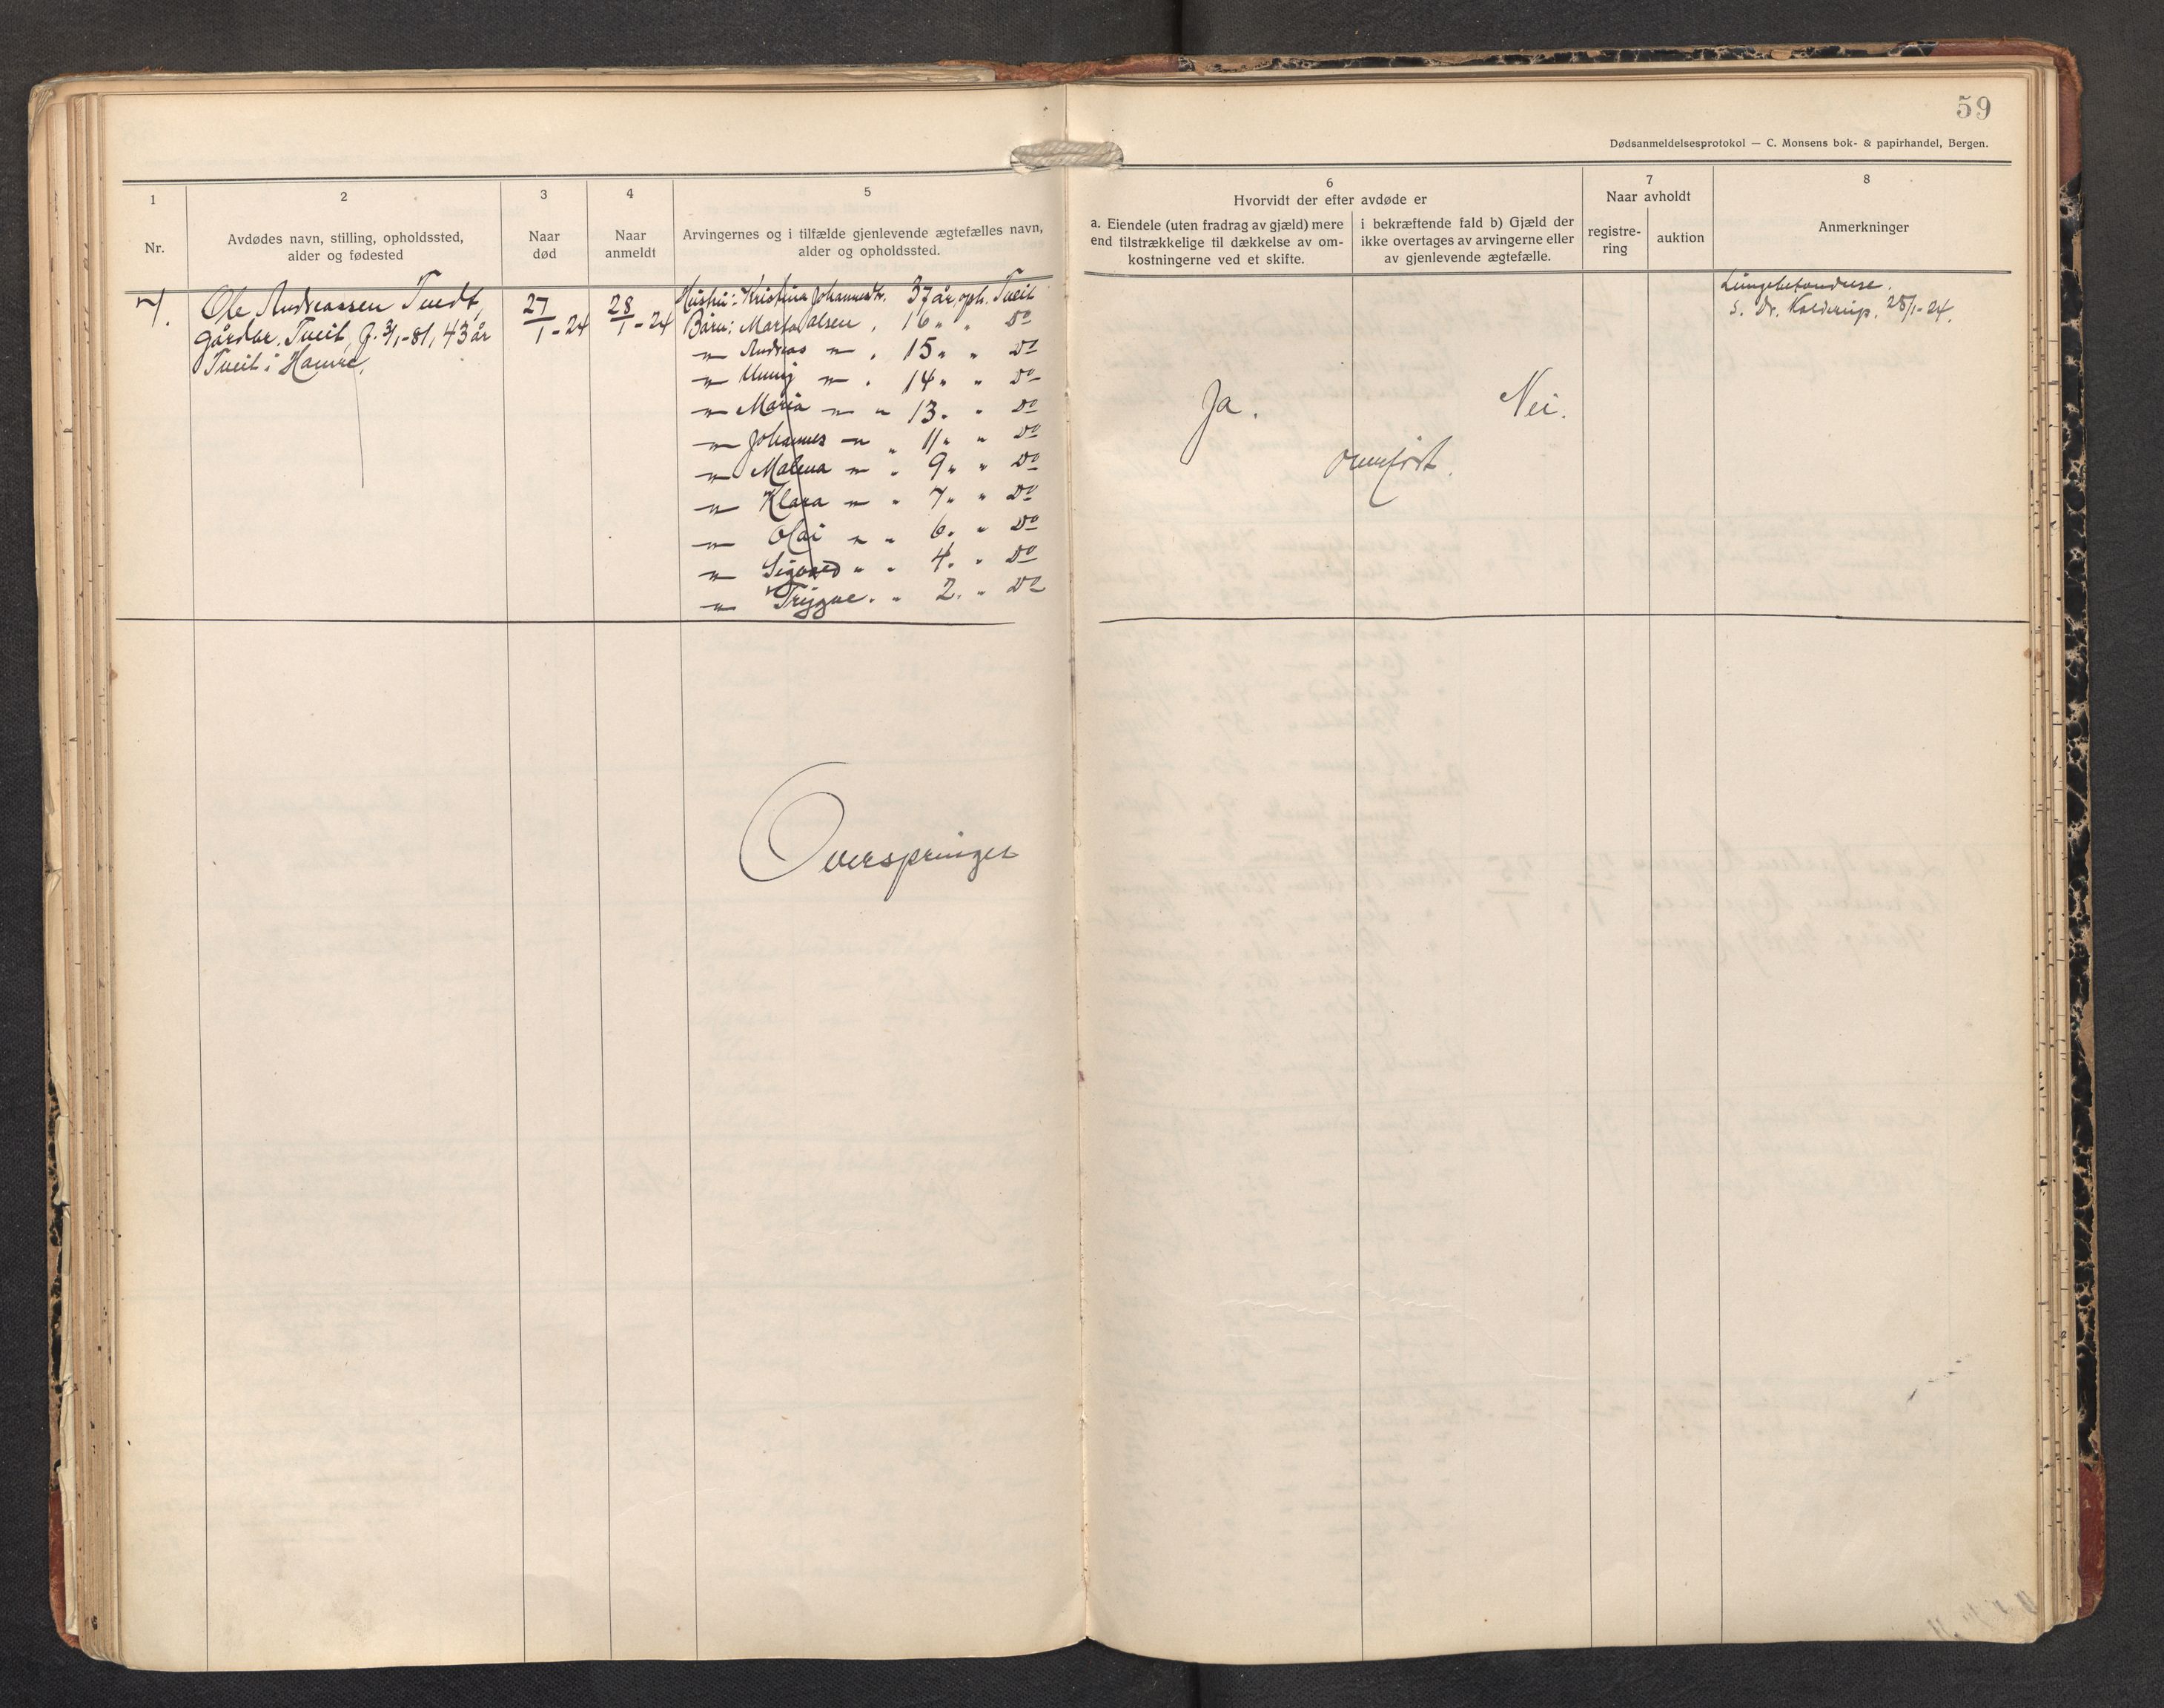 59
Dødsanmeldelsesprotokol — C. Monsens bok- & papirhandel, Bergen.
1
Nr.
2
Avdødes navn, stilling, opholdssted,
alder og fødested
3
Naar
død
4
Naar
anmeldt
5
Arvingernes og i tilfælde gjenlevende ægtefælles navn,
alder og opholdssted.
6
Hvorvidt der efter avdøde er
a. Eiendele (uten fradrag av gjæld) mere
end tilstrækkelige til dækkelse av om-
kostningerne ved et skifte.
i bekræftende fald b) Gjæld der
ikke overtages av arvingerne eller
av gjenlevende ægtefælle.
7
Naar avholdt
registre-
ring
auktion
8
Anmerkninger
7.
Ole Andreassen Tvedt,
gårdbr. Tveit, f. 3/1-81, 43 år
Tveit i Hamre.
27/1-24
28/1-24
Hustru: Kristina Johannesdtr. 37 år, oph. Tveit
Børn: Marta Olsen, 16 " " Do
—"— Andreas —"— , 15 " " Do
—"— —"— , 14 " " Do
—"— Maria —"— " 13. " Do
—"— Johannes —"— " 11 " " Do
—"— Malena —"— " 9 " " Do
—"— Klara —"— " 7 " " Do
—"— Olai —"— " 6. " Do
—"— Sigvard " " 4. " Do
—"— Trygve. " 2. " Do
Ja.
Nei.
Lungebetændelse.
s. Dr. Kolderup. 28/1-24.
Overspringes